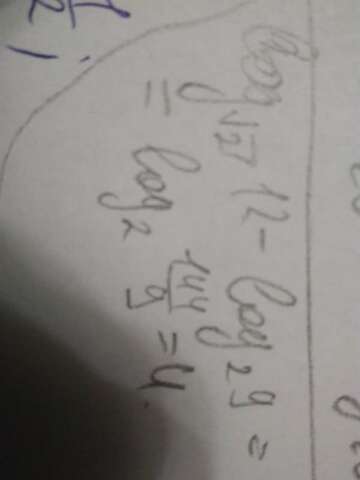 log√2 12 - log₂ 9 =
= log₂ 144/9 = 4.
1/2 ;